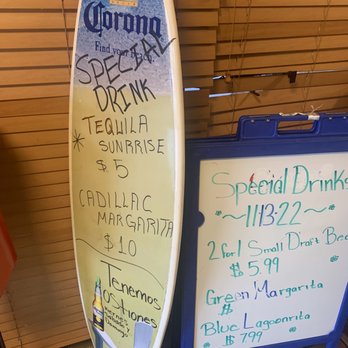 Corona
Find your
SPECIAL
DRINK
* TEQUILA
SUNRRISE
$5
CADILLAC
MARGARITA
$10
Tenemos
OStiones
Viernes
Sabado
Domingo
Special Drinks
~11-13-22~
2 for 1 Small Draft Bee
$5.99
Green Margarita
$
Blue Lagoonrita
$799